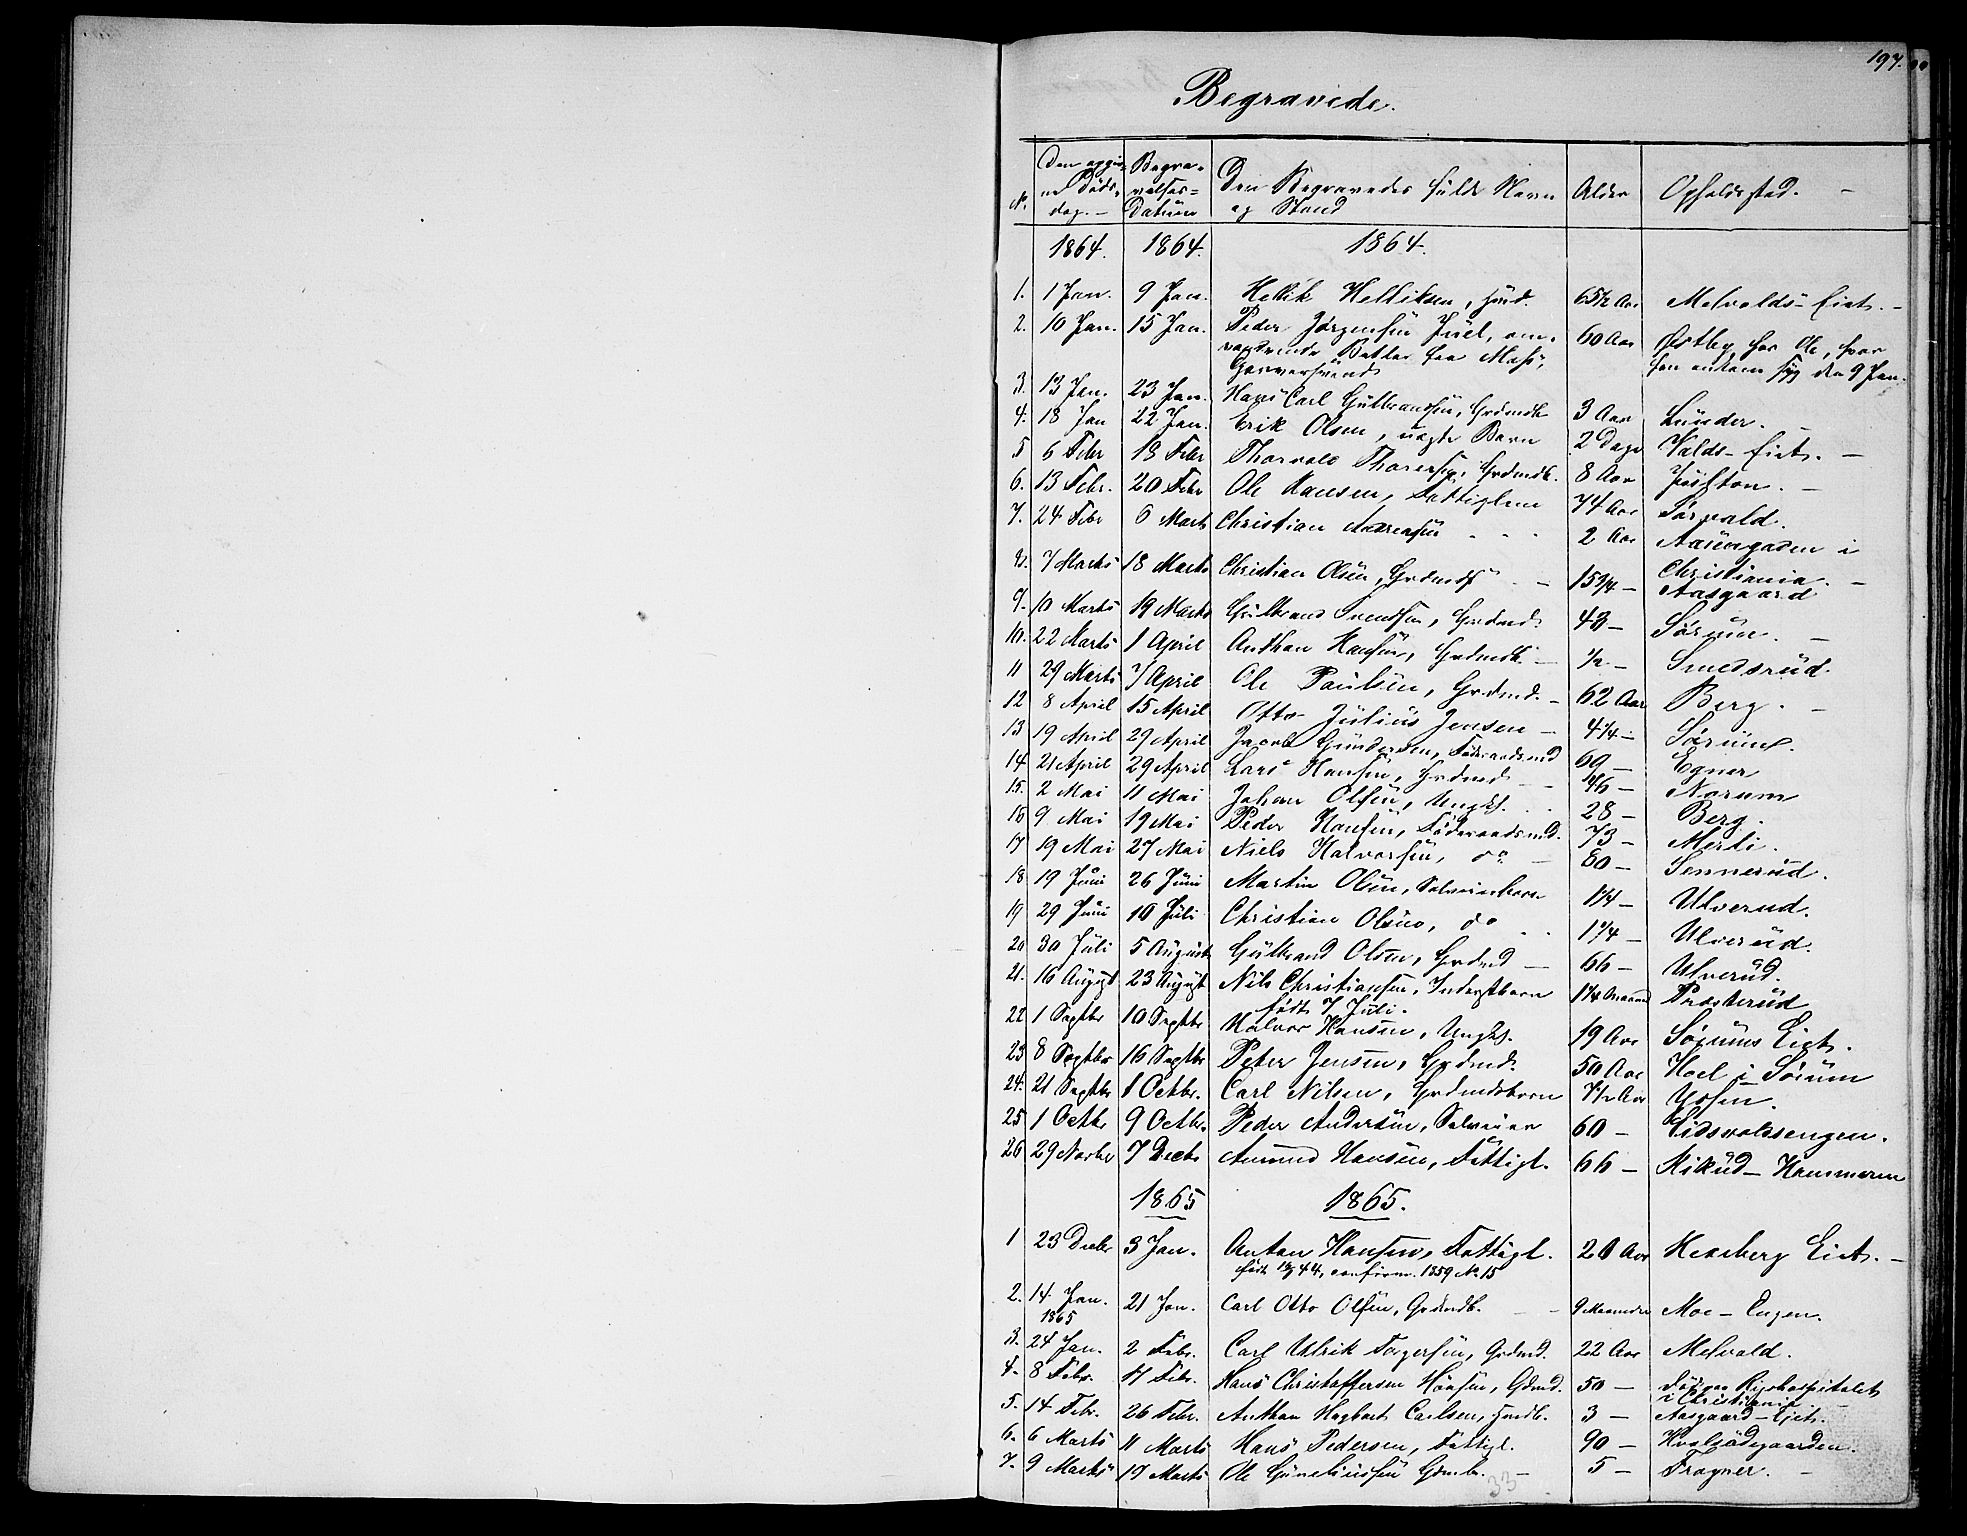 197.
Begravede.
N. Den opgivne Døds-dag. – Begravelses-Datum Den Begravedes fulde Navn og Stand Alder Opholdssted. –
1864. 1864. 1864.
1. 1 Jan. 9 Jan. Hellik Helliksen, Huusmd. 65½ Aar Melvolds-Eiet. –
2. 10 Jan. 15 Jan. Peder Jørgensen Juel, om- 60 Aar Østby, hos Ole, hvor
vandrende Betler fra Moss, han ankom syg den 9 Jan.
Garversvend
3. 13 Jan. 23 Jan. Hans Carl Gulbrandsen, Grdmdb. 3 Aar Lunder. –
4. 18 Jan 22 Jan. Erik Olsen, uægte Barn 2 Dage Valds-Eiet. –
5 6 Febr 13 Febr Thorvald Thoresen, Grdmdb. 8 Aar
6. 13 Febr. 20 Febr Ole Hansen, Fattiglem 74 Aar Sørvald.
7. 24 Febr 6 Marts Christian Andreasen 2 Aar i
Christiania. –
8. 7 Marts 18 Marts Christian Olsen, Grdmds – 15¾ – Aasgaard
9. 10 Marts 19 Marts Gulbrand Svendsen, Grdmd. 43 – Sørum. –
10. 22 Marts 1 April Anthon Hansen, Grdmdb. – ½ – Smedsrud.
11 29 Marts 7 April Ole Paulsen, Grdmd. – 62 Aar Berg. –
12 8 April 15 April Otto Julius Jensen – 4¼ – Sørum.
13 19 April 29 April Jacob Gundersen, Føderaadsmd 69 – Egner
14 21 April 29 April Lars Hansen, Grdmd 46 – Norum
15. 2 Mai 11 Mai Johan Olsen, Ungk. 28 – Berg.
16 9 Mai 19 Mai Peder Hansen, Føderaadsmd. 73 – Merli.
17 19 Mai 27 Mai Niels Halvorsen, do – 80 – Sennerud.
18 19 Juni 26 Juni Martin Olsen, Selveierbarn 1¼ – Ulverud.
19 29 Juni 10 Juli Christian Olsen, do 1¼ – Ulverud.
20 30 Juli 5 August Gulbrand Olsen, Grdmd – 66 – Ulverud.
21. 16 August 23 August Nils Christiansen, Inderstbarn 1¼ Maaned Præsterud
født 7 Juli.
22 1 Septbr 10 Septbr Halvor Hansen, Ungk. 19 Aar Sørums Eiet.
23 8 Septbr 16 Septbr Peter Jensen, Grdmd. 50 Aar Hoel i Sørum
24. 21 Septbr 1 Octbr. Carl Nilsen, Grdmdsbarn 7½ Aar
25 1 Octbr 9 Octbr. Peder Andersen, Selveier 60 – Eidsvoldsengen.
26 29 Novbr 7 Decbr Amund Hansen, Fattigl. 66 – Rikud-Hammeren
1865 1865.
1 23 Decbr 3 Jan. Anton Hansen, Fattigl. 20 Aar Hexeberg Eiet. –
født 44, confirm. 1859 No. 15
2. 14 Jan. 21 Jan. Carl Otto Olsen, Grdmdb. – – 9 Maaneder Moe-Engen.
1865
3. 24 Jan. 2 Febr. Carl Ulrik Torgersen, Grdmd. 22 Aar Melvold.
4. 8 Febr. 17 Febr. Hans Christoffersen Hansen, Gdmd. 50 – Rigshospitalet
i Christiania
5. 14 Febr. 26 Febr. Anthon Hagbart Carlsen, Husmdb. 3 – Aasgaard-Eiet.
6. 6 Marts 11 Marts Hans Pedersen, Fattigl. 90 – Hvalsødegaarden.
7. 9 Marts 17 Marts Ole Guneliussen Gdmdb. – 5 – Fragner. –
33